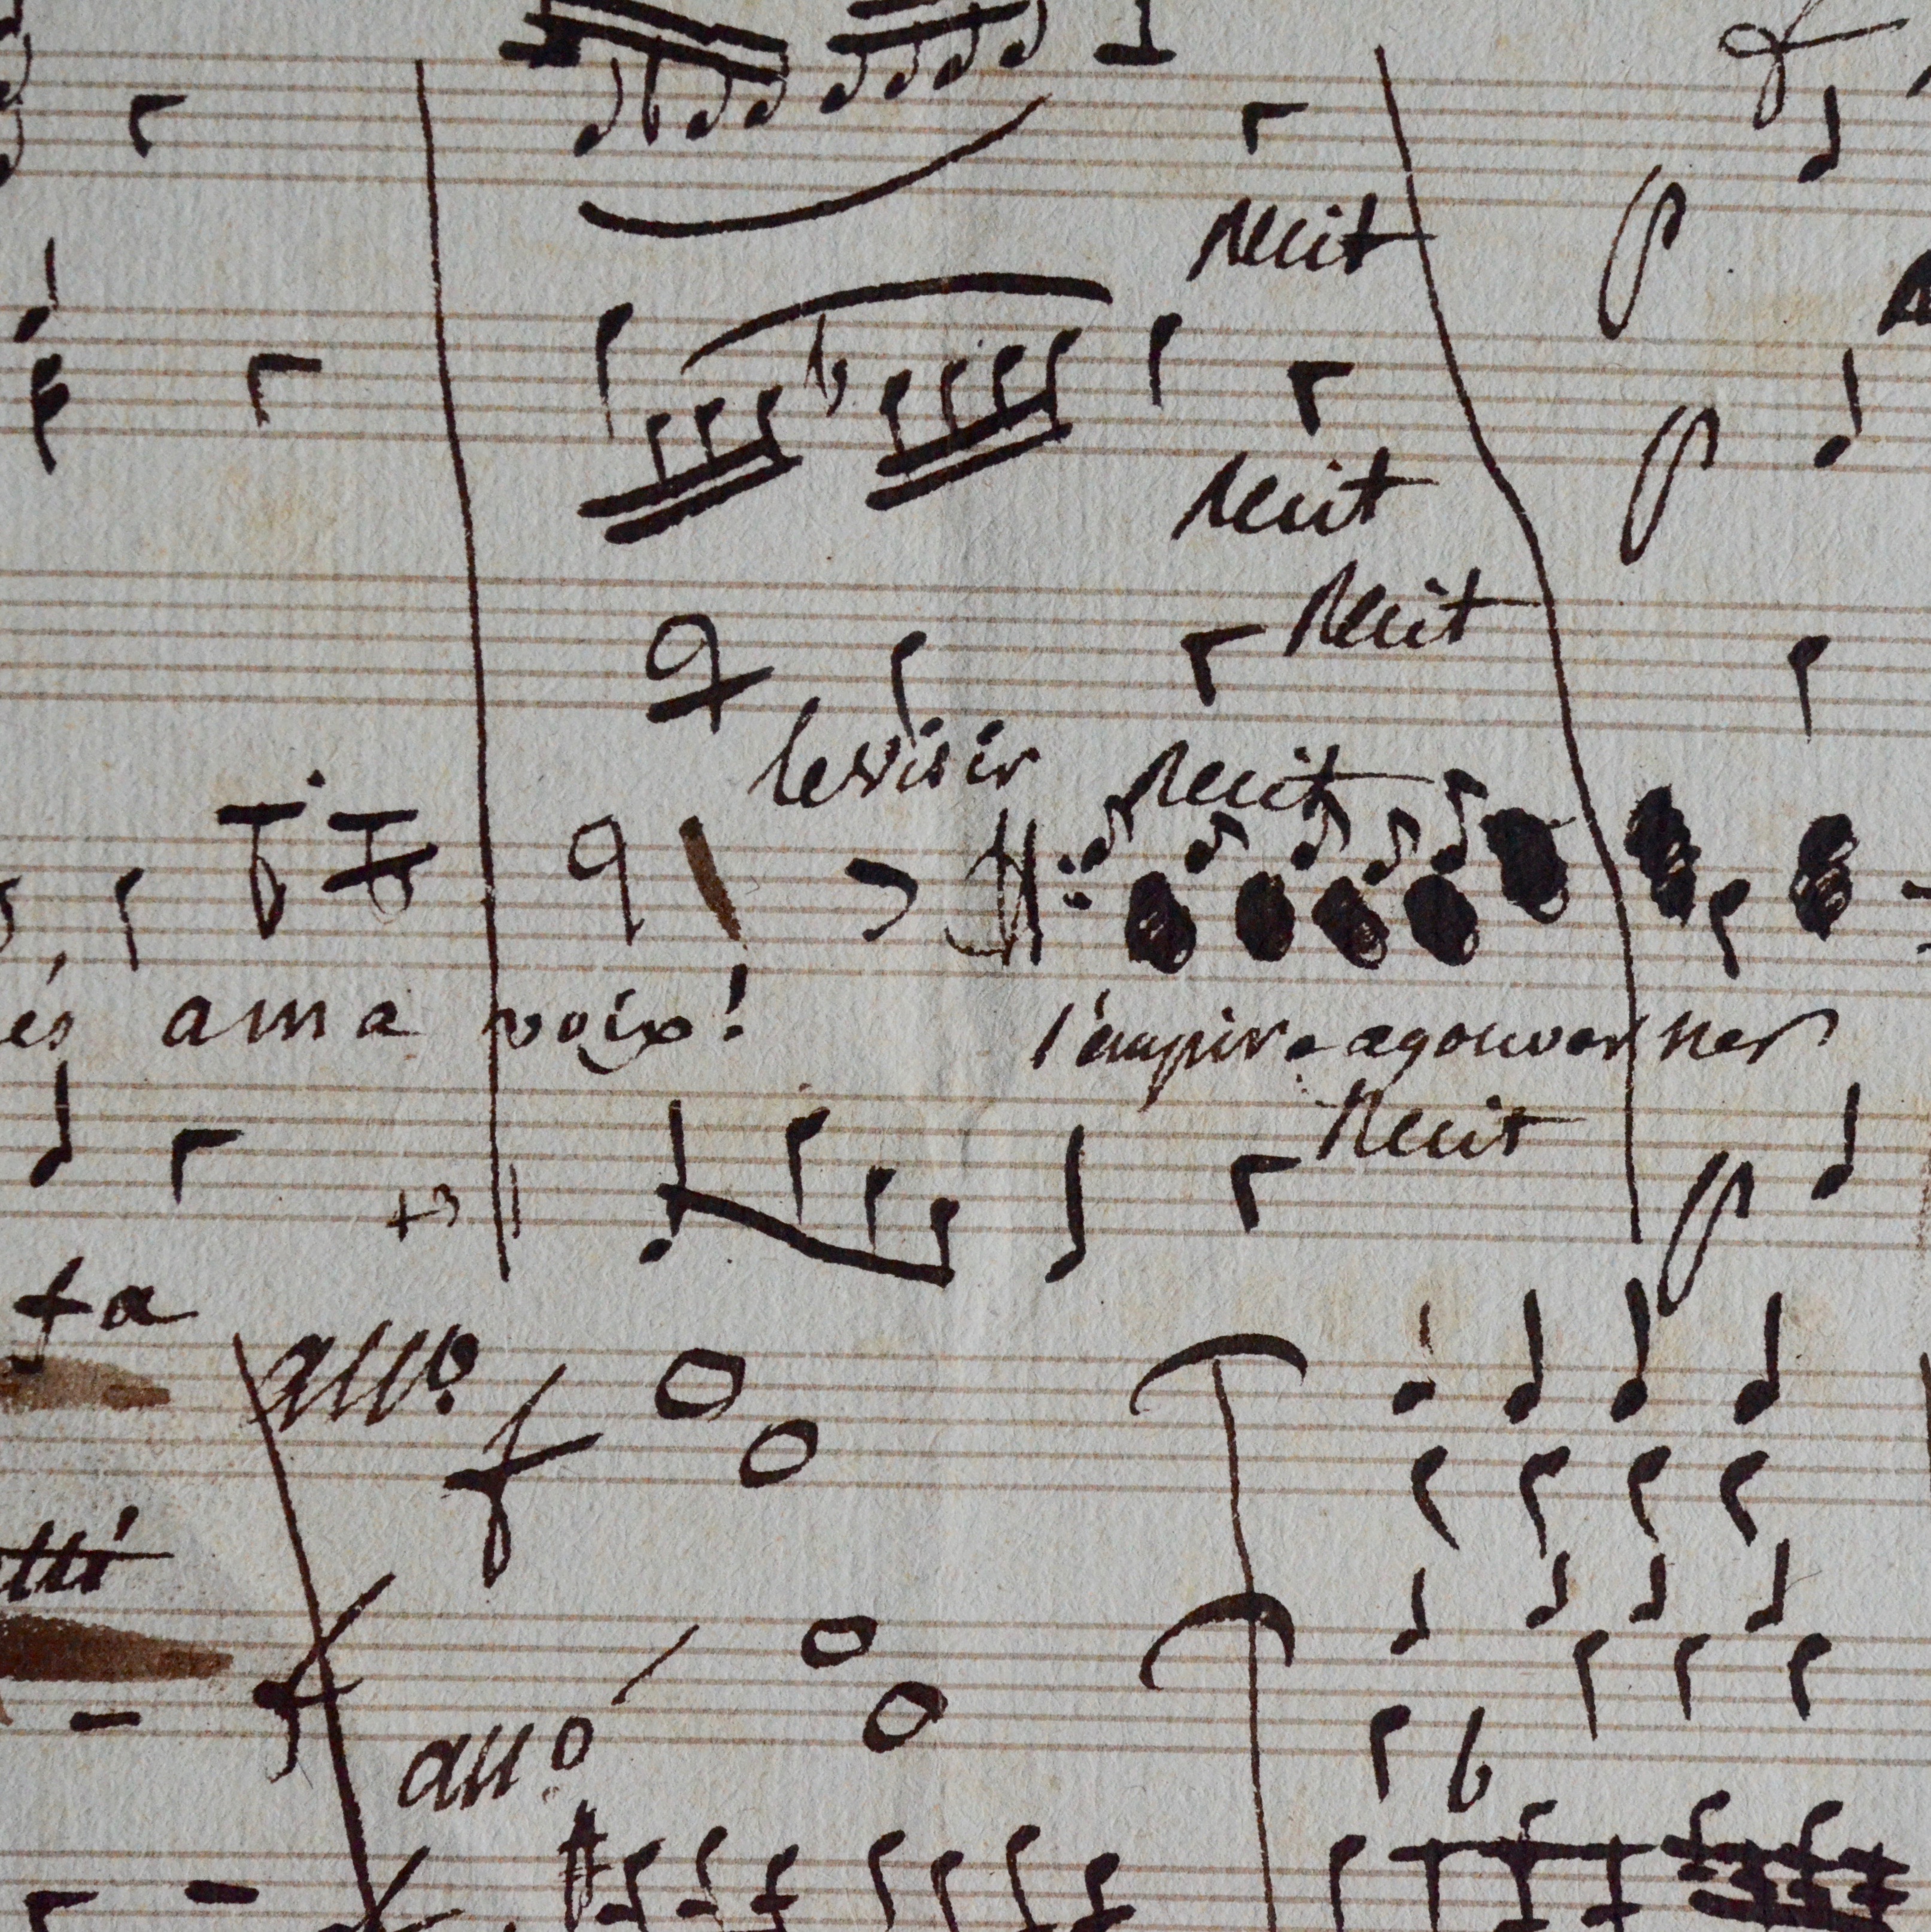 recit
recit
recit
levisir recit
és a ma voix! l'empire agouverner
recit
fa
allo
f
tti
f
allo